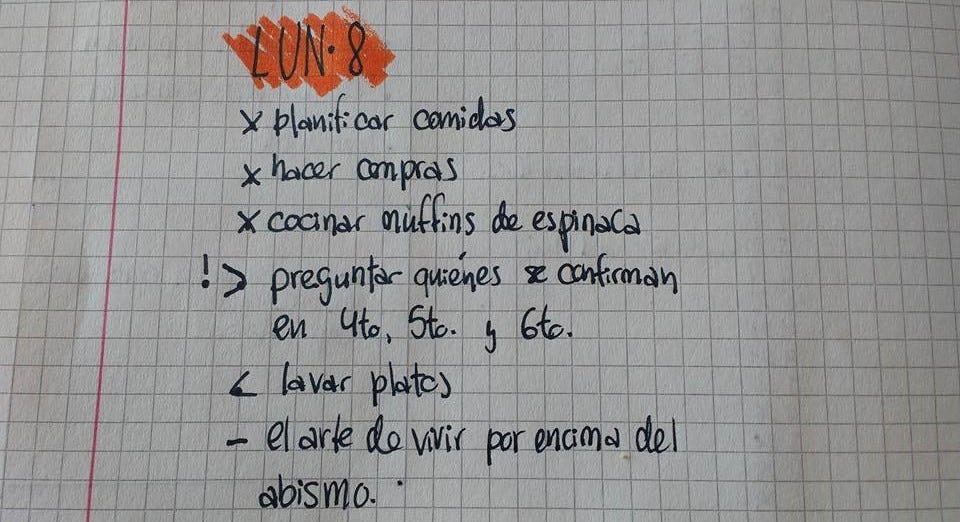 LUN. 8
x planificar comidas
x hacer compras
x cocinar muffins de espinaca
! > preguntar quiénes se confirman
en 4to, 5to. y 6to.
< lavar platos
- el arte de vivir por encima del
abismo.